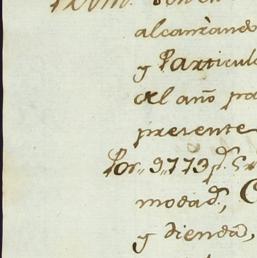 alcanzando
y Particul
del año pa
presente
Por., 9,,773 p.s
modad.,
y dienda,